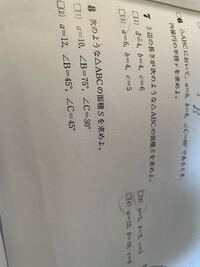 △ABCにおいて, a=6, b=8, ∠C=60°であるとき,
内接円の半径 r を求めよ。
7 3辺の長さが次のような△ABCの面積Sを求めよ。
□(1) a=4, b=4, c=6
□(3) a=6, b=4, c=5
8 次のような△ABCの面積Sを求めよ。
□(1) a=10, ∠B=75°, ∠C=30°
□(2) a=12, ∠B=45°, ∠C=45°